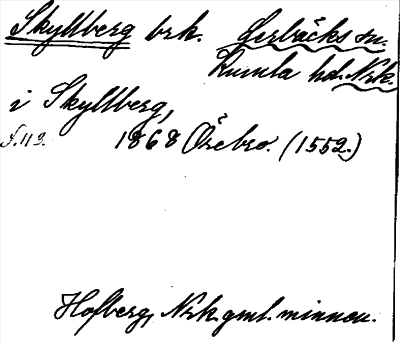 Skyllberg brk. Lerbäcks sn.
Kumla hd. Nrk.
i Skyllberg,
s. 113. 1868 Örebro. (1552.)
Hofberg, Nrk. gml. minnen.